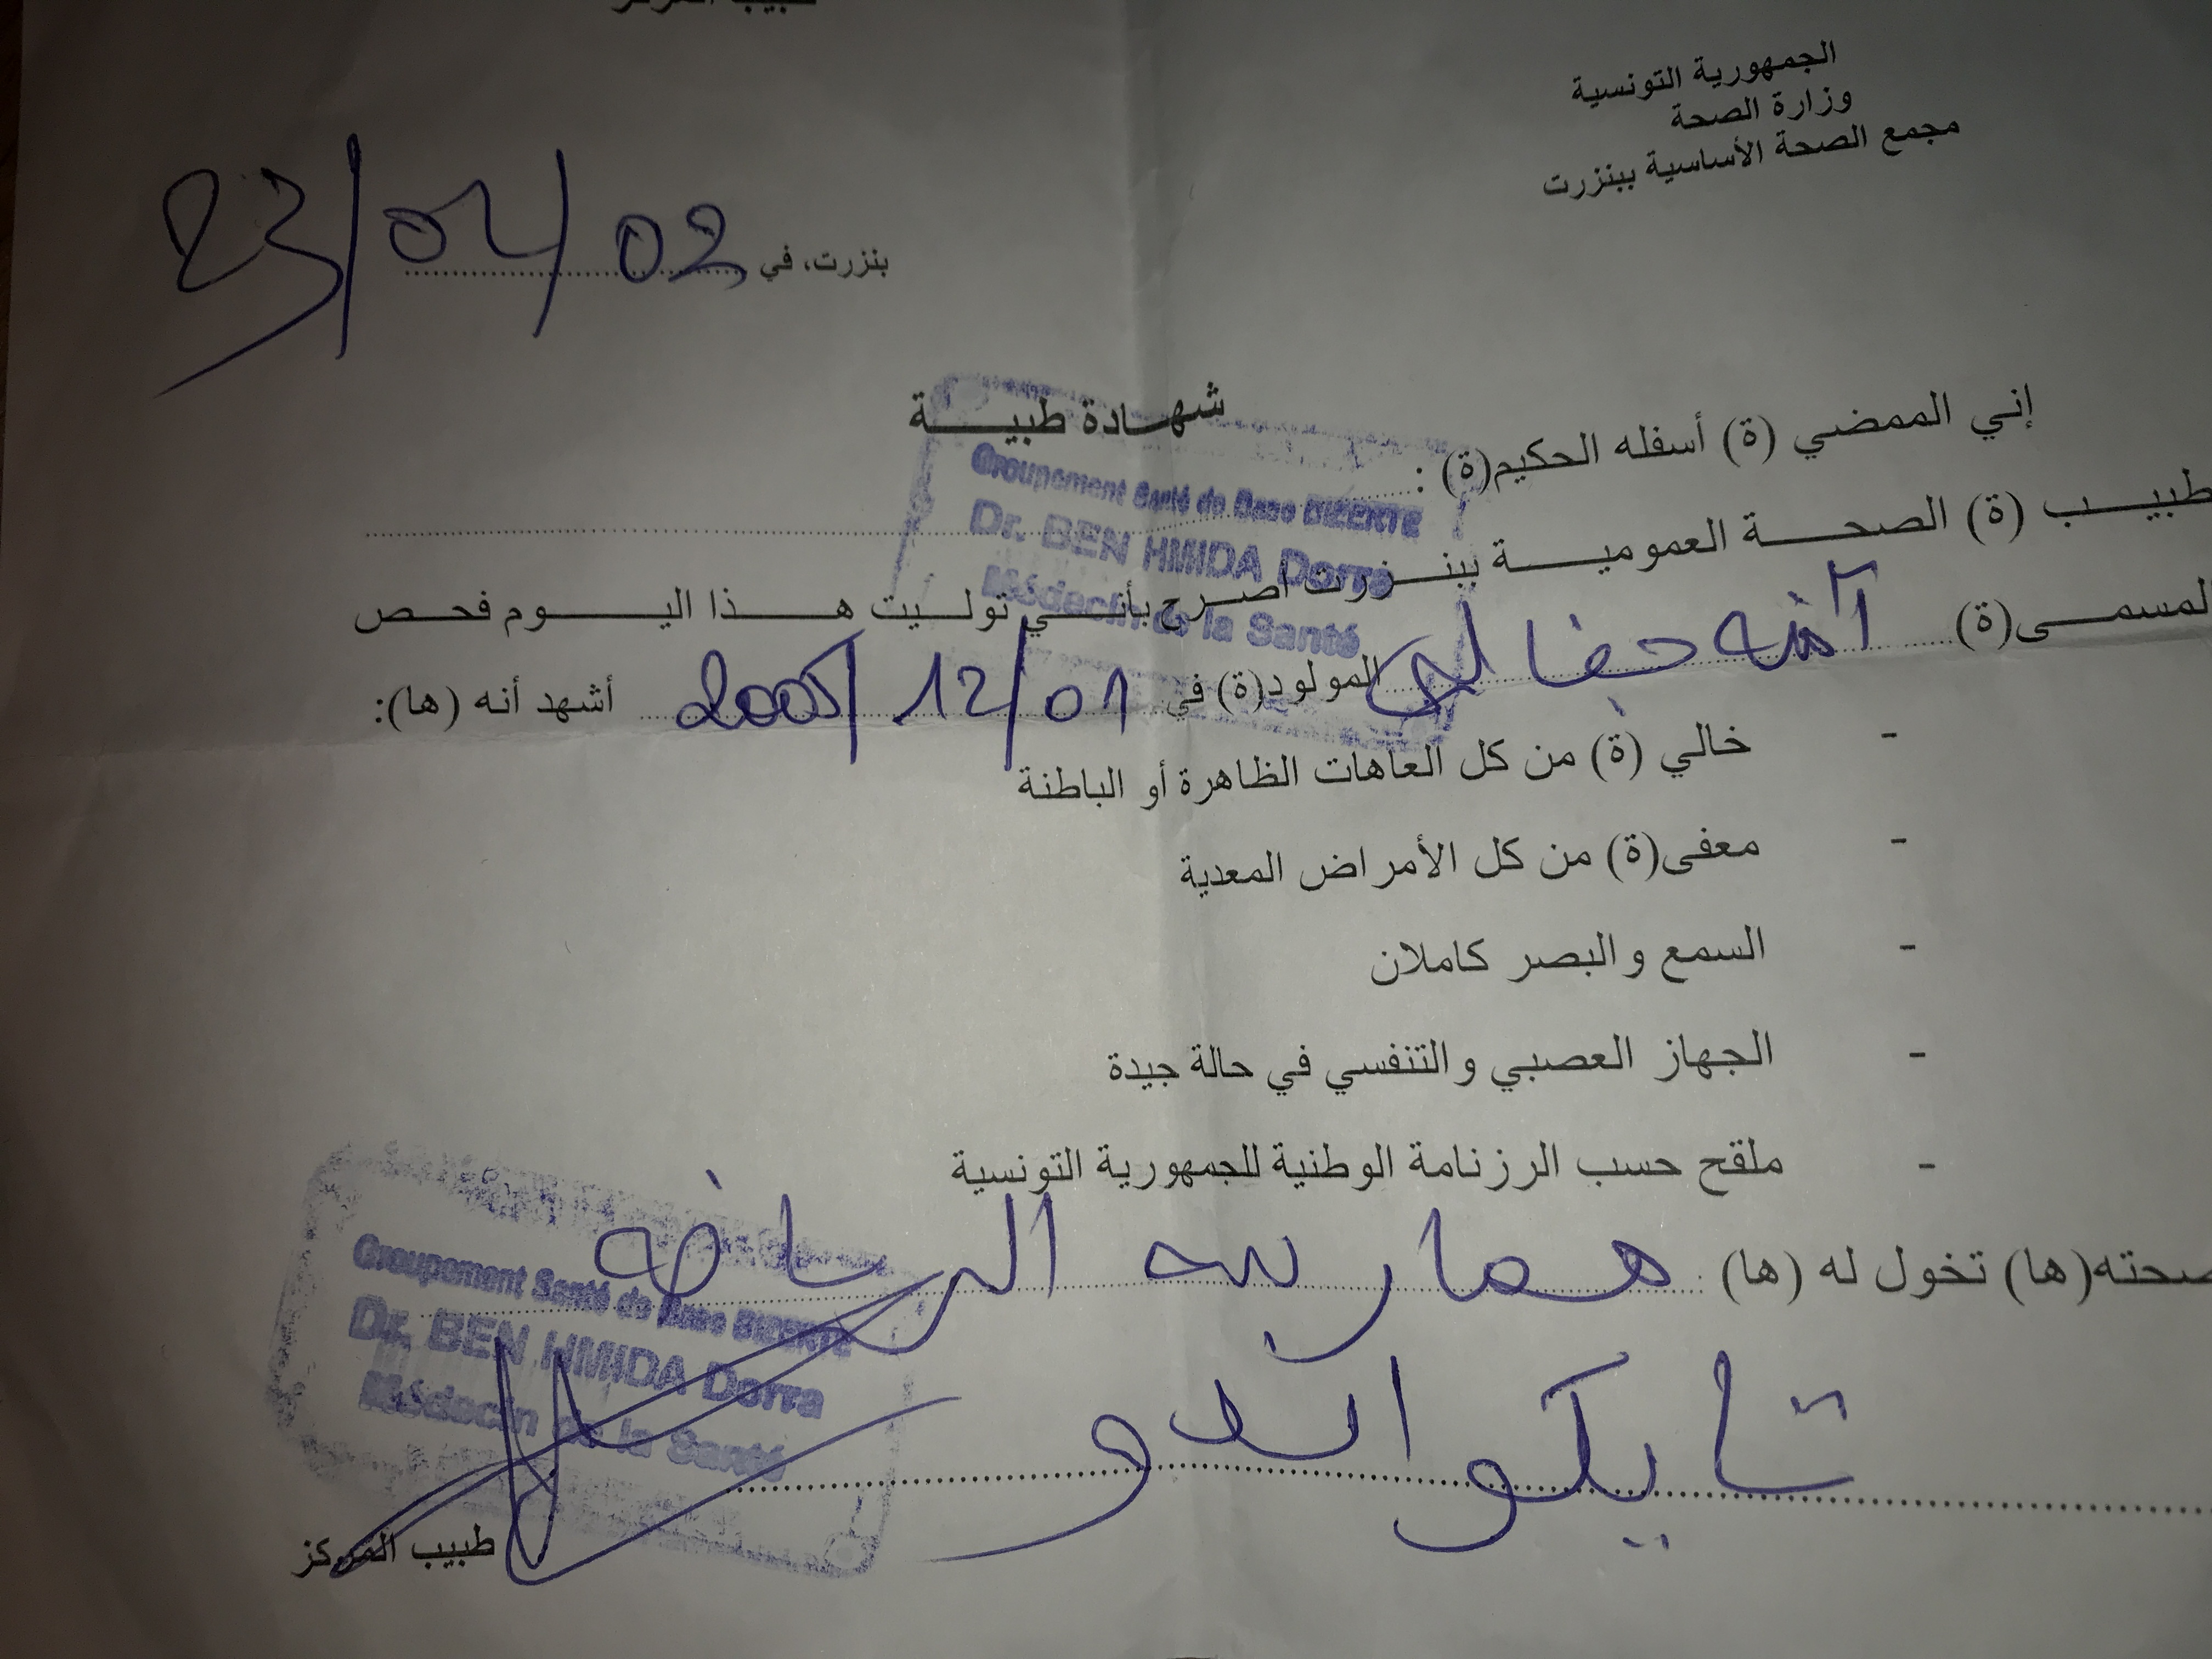 الجمهورية التونسية
وزارة الصحة
مجمع الصحة الأساسية ببنزرت
بنزرت، في 02/04/23
شهادة طبية
إني الممضي (ة) أسفله الحكيم(ة) :
Groupement Santé de Base BIZERTE
Dr. BEN HMIDA Dorra
Médecin de la Santé
طبيب (ة) الصحة العمومية ببنزرت أصرح بأني توليت هذا اليوم فحص
المسمى(ة) آمنه جفالي المولود(ة) في 01/12/2005 أشهد أنه (ها):
- خالي (ة) من كل العاهات الظاهرة أو الباطنة
- معفى(ة) من كل الأمراض المعدية
- السمع والبصر كاملان
- الجهاز العصبي والتنفسي في حالة جيدة
- ملقح حسب الرزنامة الوطنية للجمهورية التونسية
صحته(ها) تخول له (ها) : ممارسة الرياضة
تايكواندو
Groupement Santé de Base BIZERTE
Dr. BEN HMIDA Dorra
Médecin de la Santé
طبيب المركز